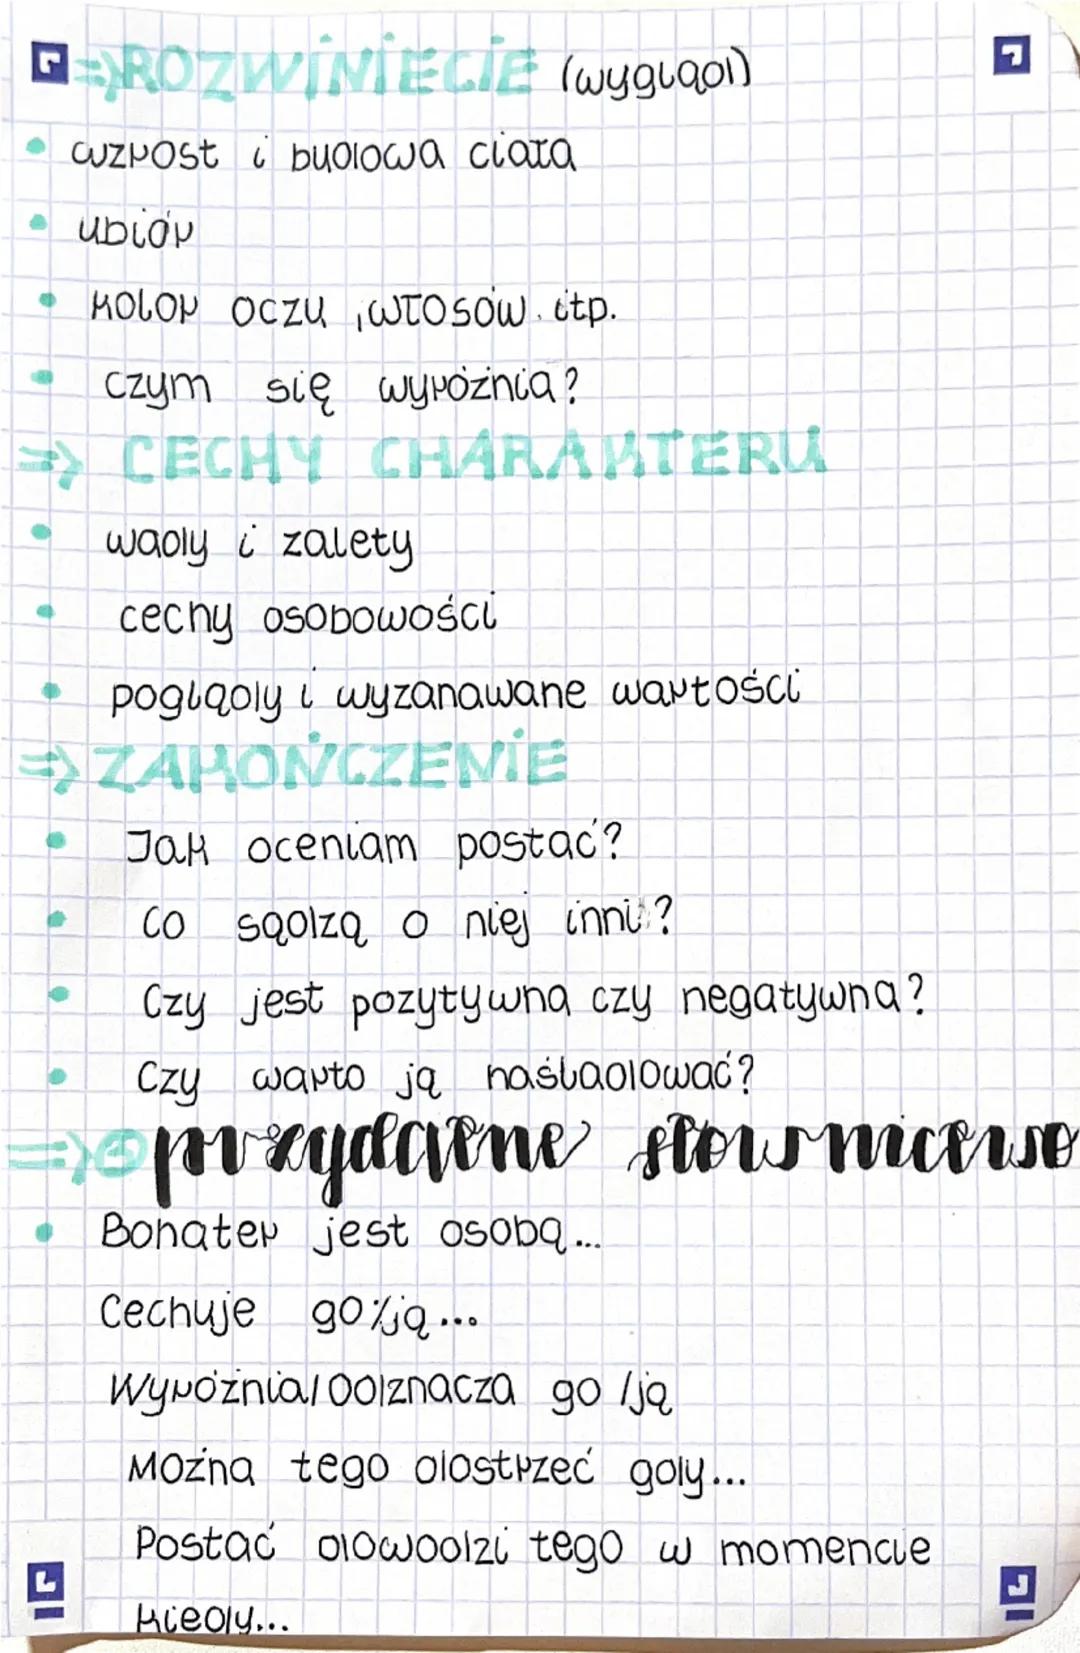 => ROZWINIĘCIE (wygląd)
• wzrost i budowa ciała
• ubiór
• kolor oczu, włosów itp.
• czym się wyróżnia?
=> CECHY CHARAKTERU
• wady i zalety
• cechy osobowości
• poglądy i wyzanawane wartości
=> ZAKOŃCZENIE
• Jak oceniam postać?
• Co sądzą o niej inni?
• Czy jest pozytywna czy negatywna?
• Czy warto ją naśladować?
=> przydatne słownictwo
• Bohater jest osobą...
Cechuje go/ją...
Wyróżnia/odznacza go/ją
Można tego dostrzeć gdy...
Postać dowodzi tego w momencie
kiedy...